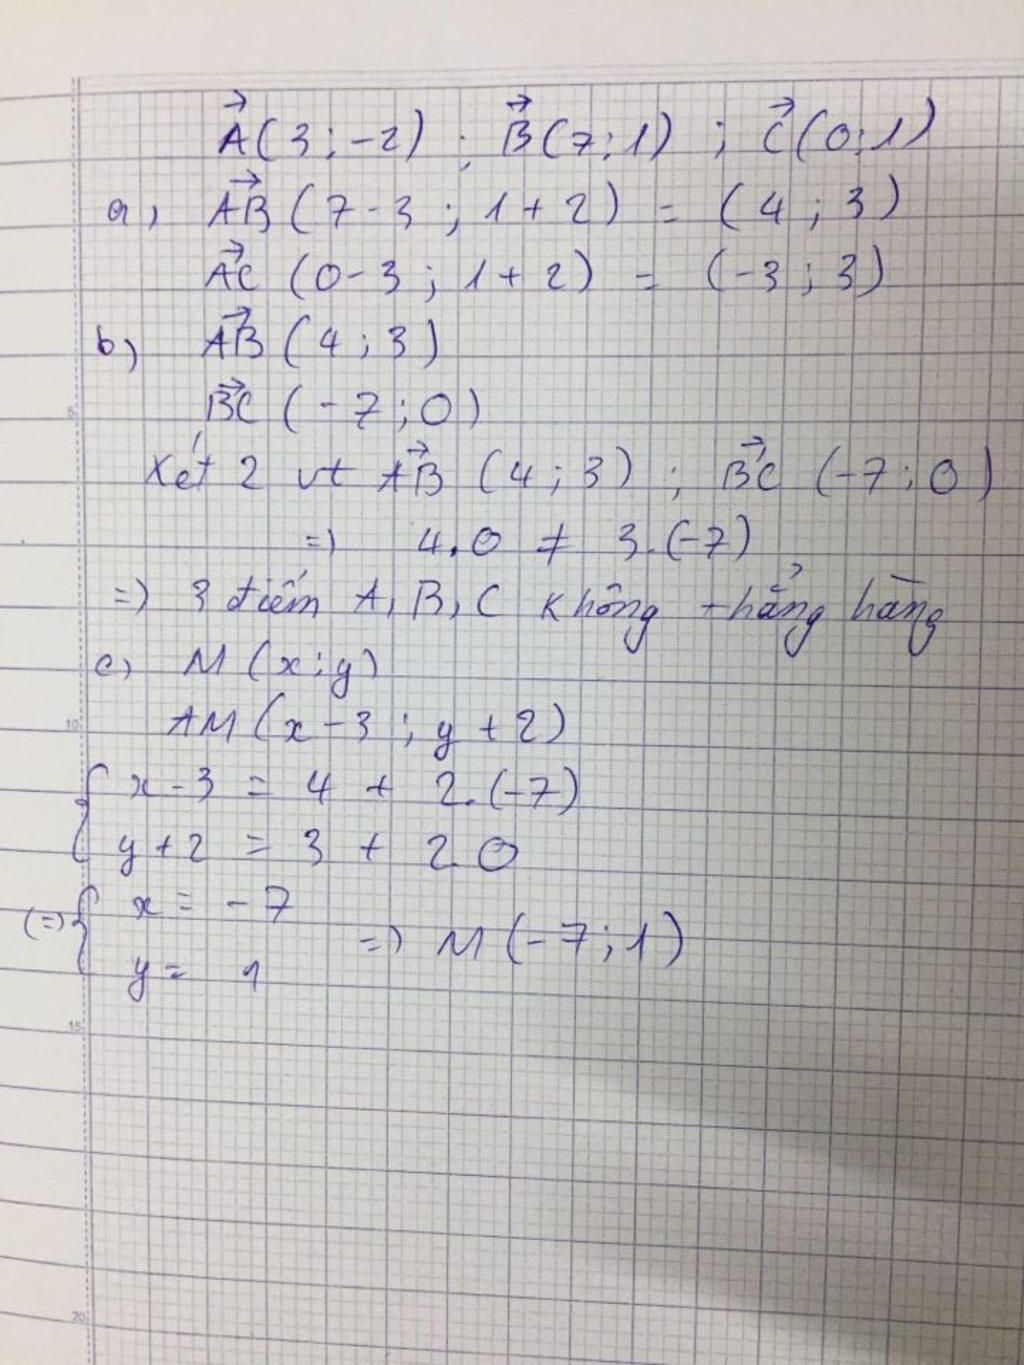 A⃗(3;-2) ; B⃗(7;1) ; C⃗(0;1)
a, AB⃗ (7-3 ; 1+2) = (4 ; 3)
AC⃗ (0-3 ; 1+2) = (-3 ; 3)
b) AB⃗ (4 ; 3)
5
BC⃗ (-7 ; 0)
Xét 2 vt AB⃗ (4 ; 3) ; BC⃗ (-7 ; 0)
=) 4.0 ≠ 3.(-7)
=) 3 điểm A, B, C không thẳng hàng
c, M (x;y)
10
AM (x-3 ; y+2)
{ x-3 = 4 + 2.(-7)
y+2 = 3 + 2.0
(=) { x = -7
y = 1 =) M(-7;1)
15
20